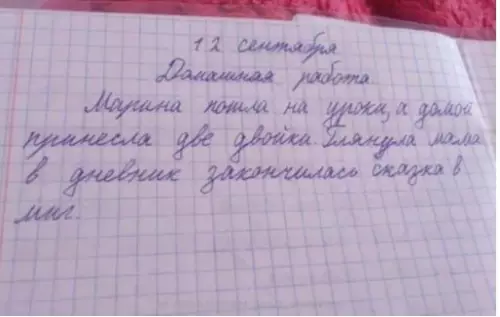 12 сентября
Домашная работа
Марина пошла на уроки, а домой
принесла две двойки. Глянула мама
в дневник закончилась сказка в
миг.